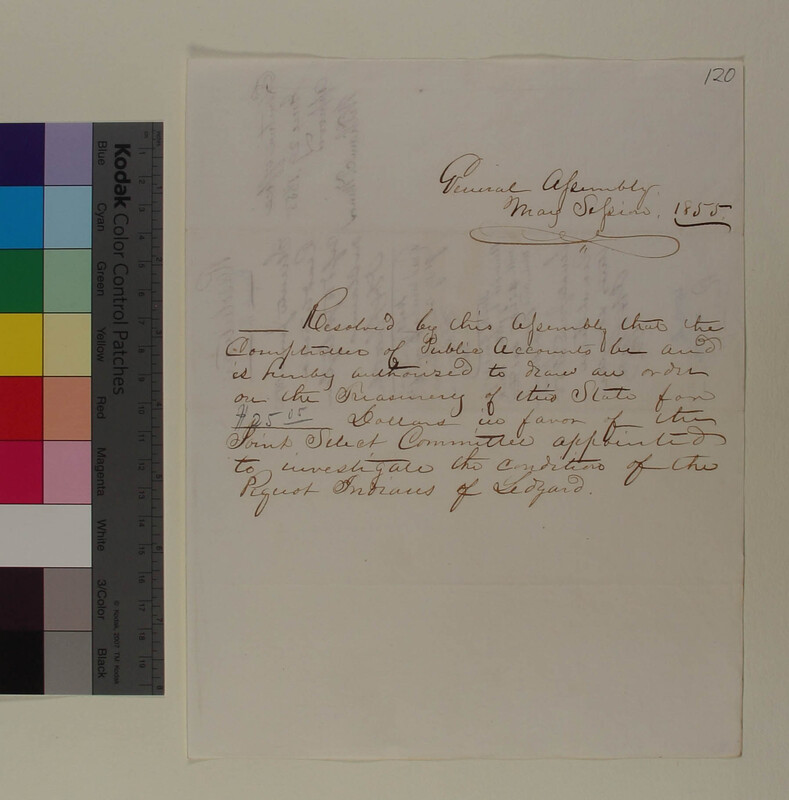 120
General Assembly
May Session. 1855.
Resolved by this Assembly that the
Comptroller of Public Accounts be and
is hereby authorized to draw an order
on the Treasurery of this State for
$25.05 Dollars in favor of the
Joint Select Committee appointed
to investigate the condition of the
Pequot Indians of Ledyard.
Kodak Color Control Patches
Blue
Cyan
Green
Yellow
Red
Magenta
White
3/Color
Black
© Kodak, 2007 TM: Kodak